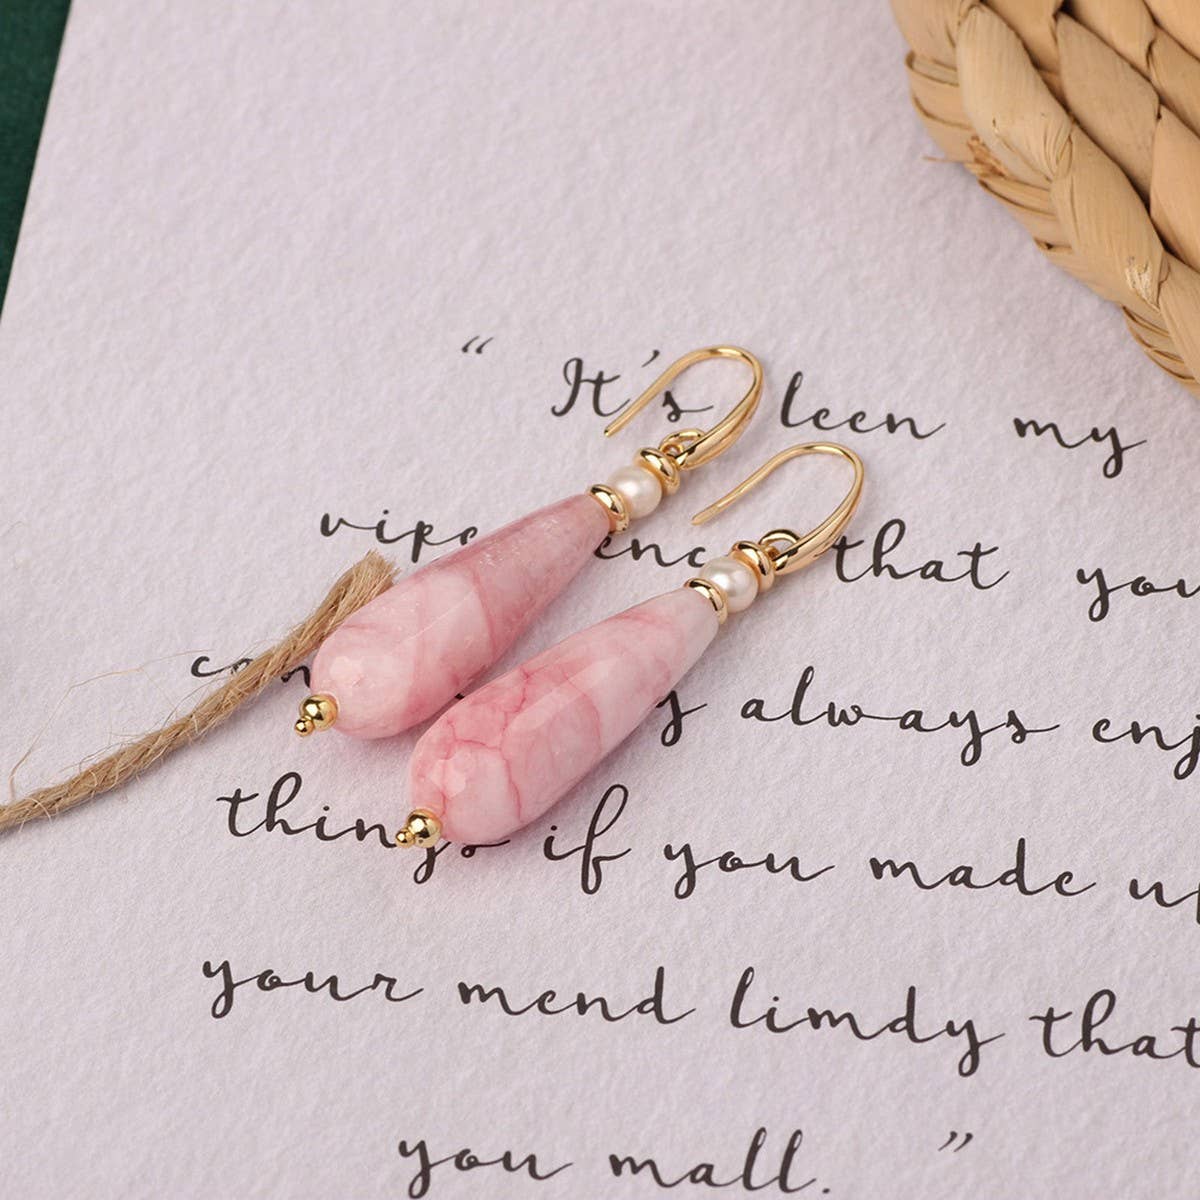 “ It's leen my
that you
always enj
things if you made up
your mend limdy that
you mall. ”